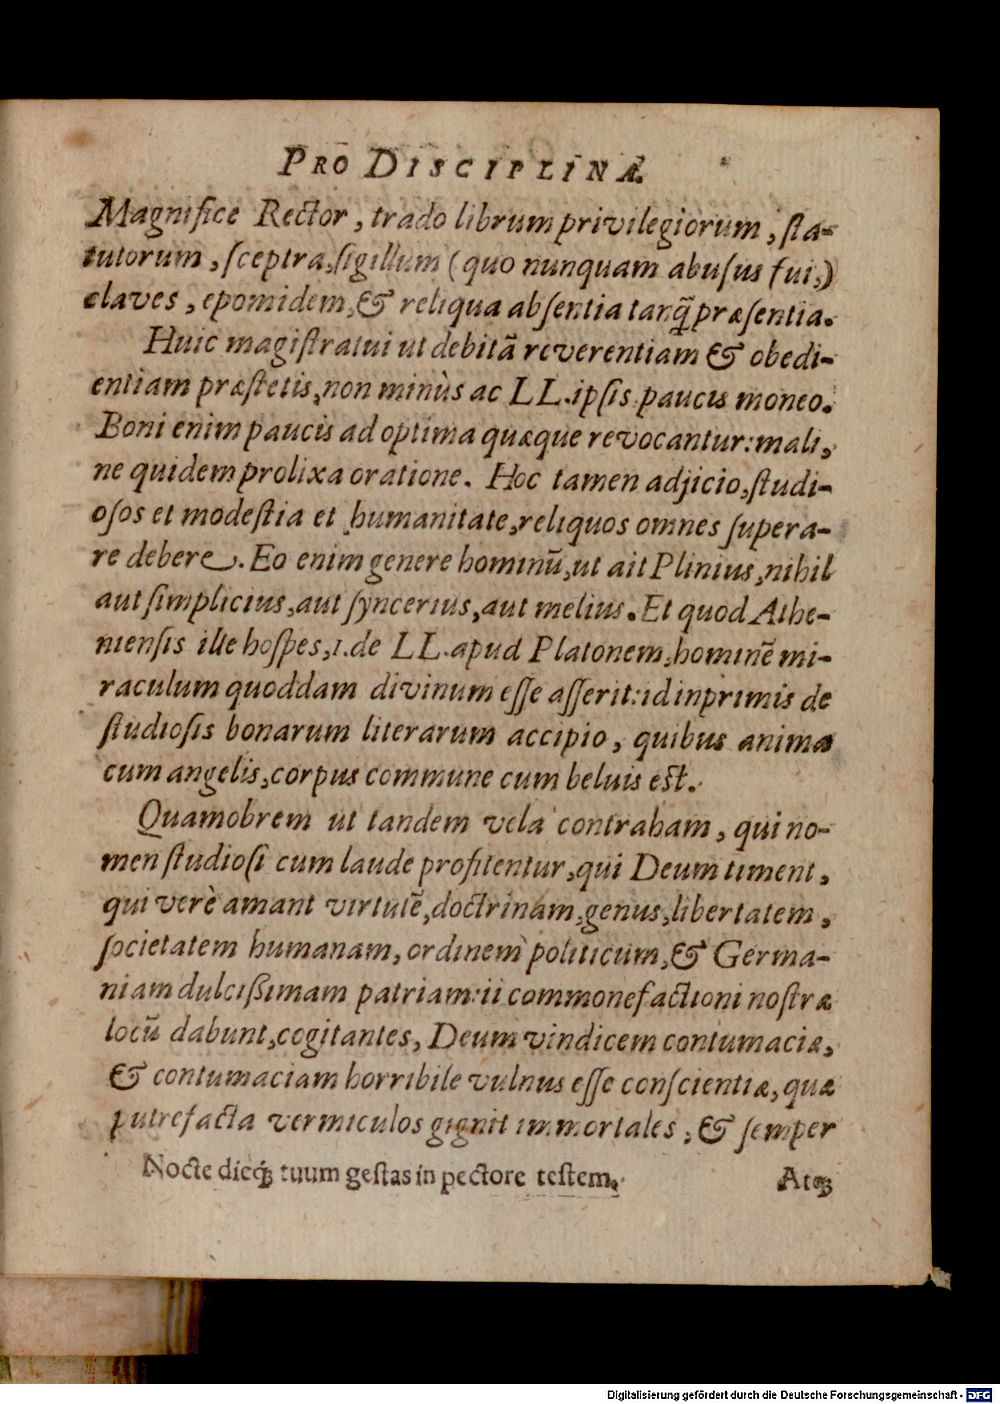 PRO DISCIPLINA.
Magnifice Rector, trado librum privilegiorum, ſta-
tutorum, ſceptra, ſigillum (quo nunquam abuſus fui,)
claves, epomidem, & reliqua abſentia tanq̃ præſentia.
Huic magiſtratui ut debitã reverentiam & obedi-
entiam præſtetis, non minùs ac LL. ipſis paucis moneo.
Boni enim paucis ad optima quæque revocantur: mali,
ne quidem prolixa oratione. Hoc tamen adjicio, ſtudi-
oſos et modeſtia et humanitate, reliquos omnes ſupera-
re debere. Eo enim genere hominũ, ut ait Plinius, nihil
aut ſimplicius, aut ſyncerius, aut melius. Et quod Athe-
nienſis ille hoſpes, 1. de LL. apud Platonem, hominẽ mi-
raculum quoddam divinum eſſe aſſerit: id inprimis de
ſtudioſis bonarum literarum accipio, quibus anima
cum angelis, corpus commune cum beluis eſt.
Quamobrem ut tandem vela contraham, qui no-
men ſtudioſi cum laude profitentur, qui Deum timent,
qui verè amant virtutẽ, doctrinam, genus, libertatem,
ſocietatem humanam, ordinem politicum, & Germa-
niam dulcißimam patriam: ii commonefactioni noſtræ
locũ dabunt, cogitantes, Deum vindicem contumaciæ,
& contumaciam horribile vulnus eſſe conſcientiæ, quæ
putrefacta vermiculos gignit immortales, & ſemper
Nocte dieq́ꝫ tuum geſtas in pectore teſtem.
Atqꝫ
Digitalisierung gefördert durch die Deutsche Forschungsgemeinschaft - DFG